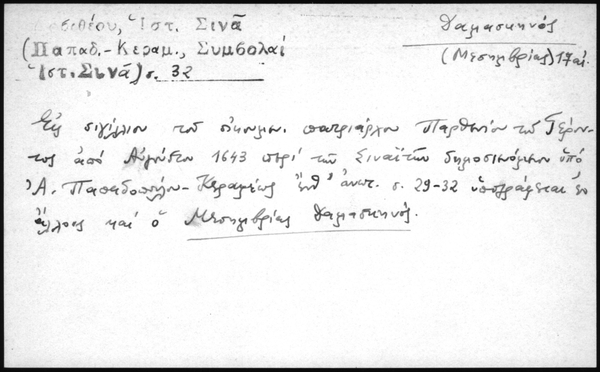 σιθέου, Ἱστ. Σινᾶ
(Παπαδ.-Κεραμ., Συμβολαί
Ἱστ. Σινᾶ) σ. 32
Δαμασκηνός
(Μεσημβρίας) 17 αἰ.
Εἰς σιγίλλιον τοῦ οἰκουμεν. πατριάρχου Παρθενίου τοῦ Γέρον-
τος ἀπό Αὐγούστου 1643 περί τῶν Σιναϊτῶν δημοσιευόμενον ὑπό
Ἀ. Παπαδοπούλου-Κεραμέως ἔνθ' ἀνωτ. σ. 29-32 ὑπογράφεται ἐν
ἄλλοις καί ὁ Μεσημβρίας Δαμασκηνός.